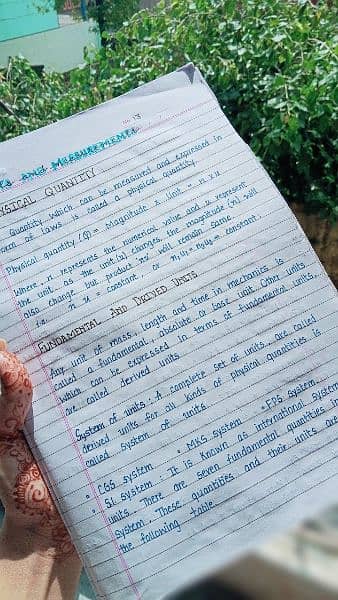 AND MEASUREMENTS
PHYSICAL QUANTITY
Quantity which can be measured and expressed in
of laws is called a physical quantity.
Physical quantity (Q) = Magnitude x Unit = n x u
Where, n represents the numerical value and u represent
the unit. as the unit (u) changes, the magnitude (n) will
also change but product 'nu' will remain same.
i.e. n u = constant, or n₁u₁ = n₂u₂ = constant.
FUNDAMENTAL AND DERIVED UNITS
Any unit of mass, length and time in mechanics is
called a fundamental, absolute or base unit. Other units
which can be expressed in terms of fundamental units,
are called derived units.
System of units: A complete set of units, are called
derived units for all kinds of physical quantities is
called system of units.
• CGS system • MKS system • FPS system.
• S.I. system: It is known as international system
units. There are seven fundamental quantities in
system. These quantities and their units are
the following table.